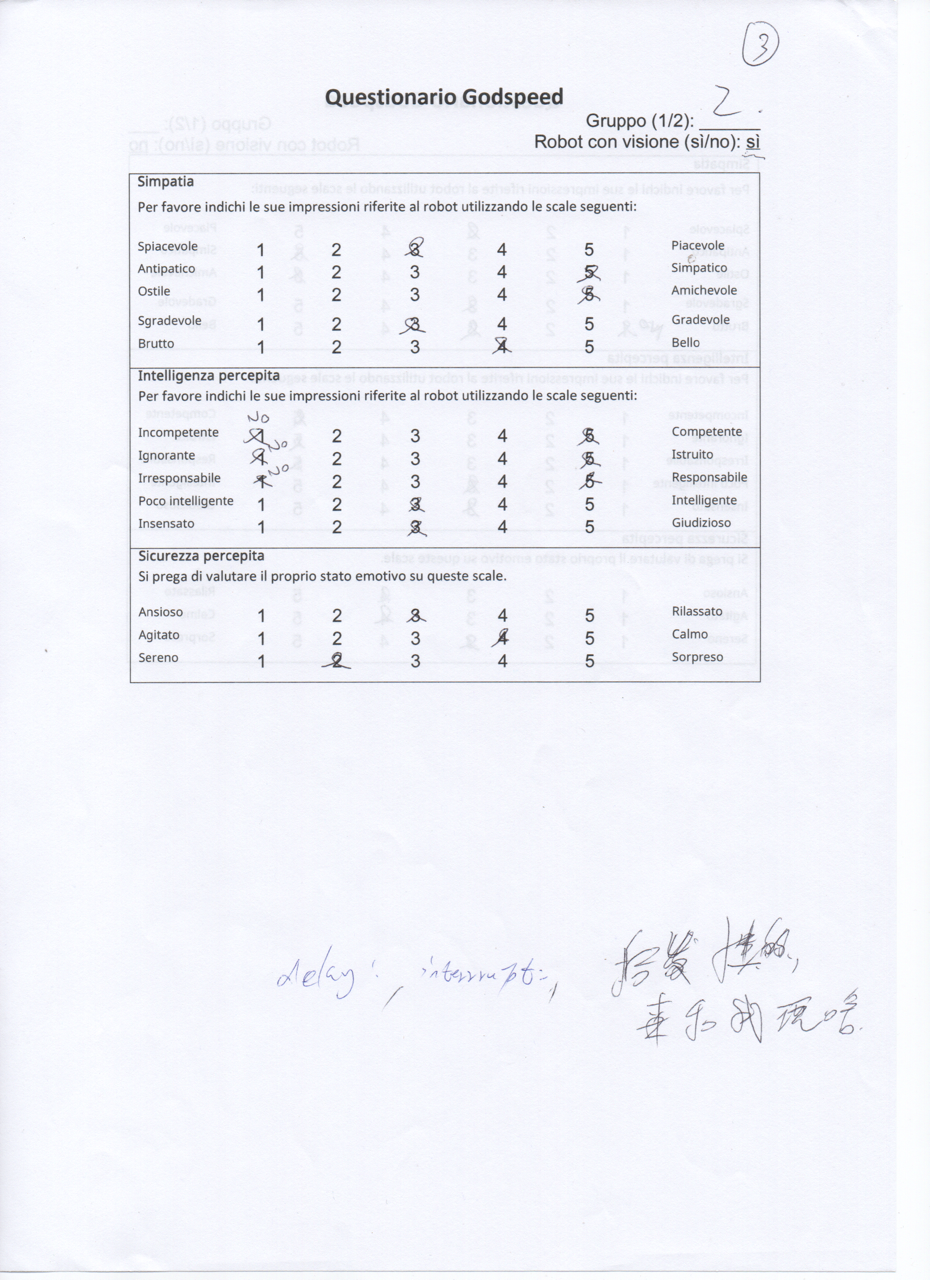 3
Questionario Godspeed
Gruppo (1/2): 2.
Robot con visione (sì/no): sì
Simpatia
Per favore indichi le sue impressioni riferite al robot utilizzando le scale seguenti:
Spiacevole 1 2 3 4 5 Piacevole
Antipatico 1 2 3 4 5 Simpatico
Ostile 1 2 3 4 5 Amichevole
Sgradevole 1 2 3 4 5 Gradevole
Brutto 1 2 3 4 5 Bello
Intelligenza percepita
Per favore indichi le sue impressioni riferite al robot utilizzando le scale seguenti:
NO
Incompetente 1 2 3 4 5 Competente
NO
Ignorante 1 2 3 4 5 Istruito
NO
Irresponsabile 1 2 3 4 5 Responsabile
Poco intelligente 1 2 3 4 5 Intelligente
Insensato 1 2 3 4 5 Giudizioso
Sicurezza percepita
Si prega di valutare il proprio stato emotivo su queste scale.
Ansioso 1 2 3 4 5 Rilassato
Agitato 1 2 3 4 5 Calmo
Sereno 1 2 3 4 5 Sorpreso
delay, interrupt